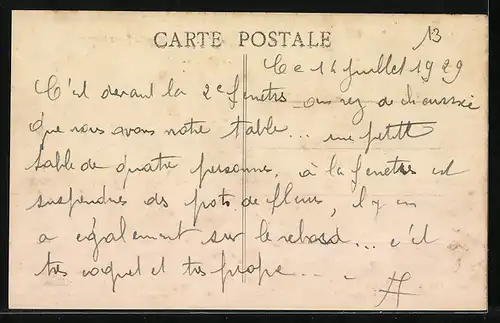 13
CARTE POSTALE
Ce 14 Juillet 1929
C'est devant la 2e fenetre au rez de chaussée
que nous avons notre table... une petite
table de quatre personnes, à la fenetre est
suspendues des pots de fleurs, il y en
a egalement sur le rebord... c'est
tres coquet et tres propre...